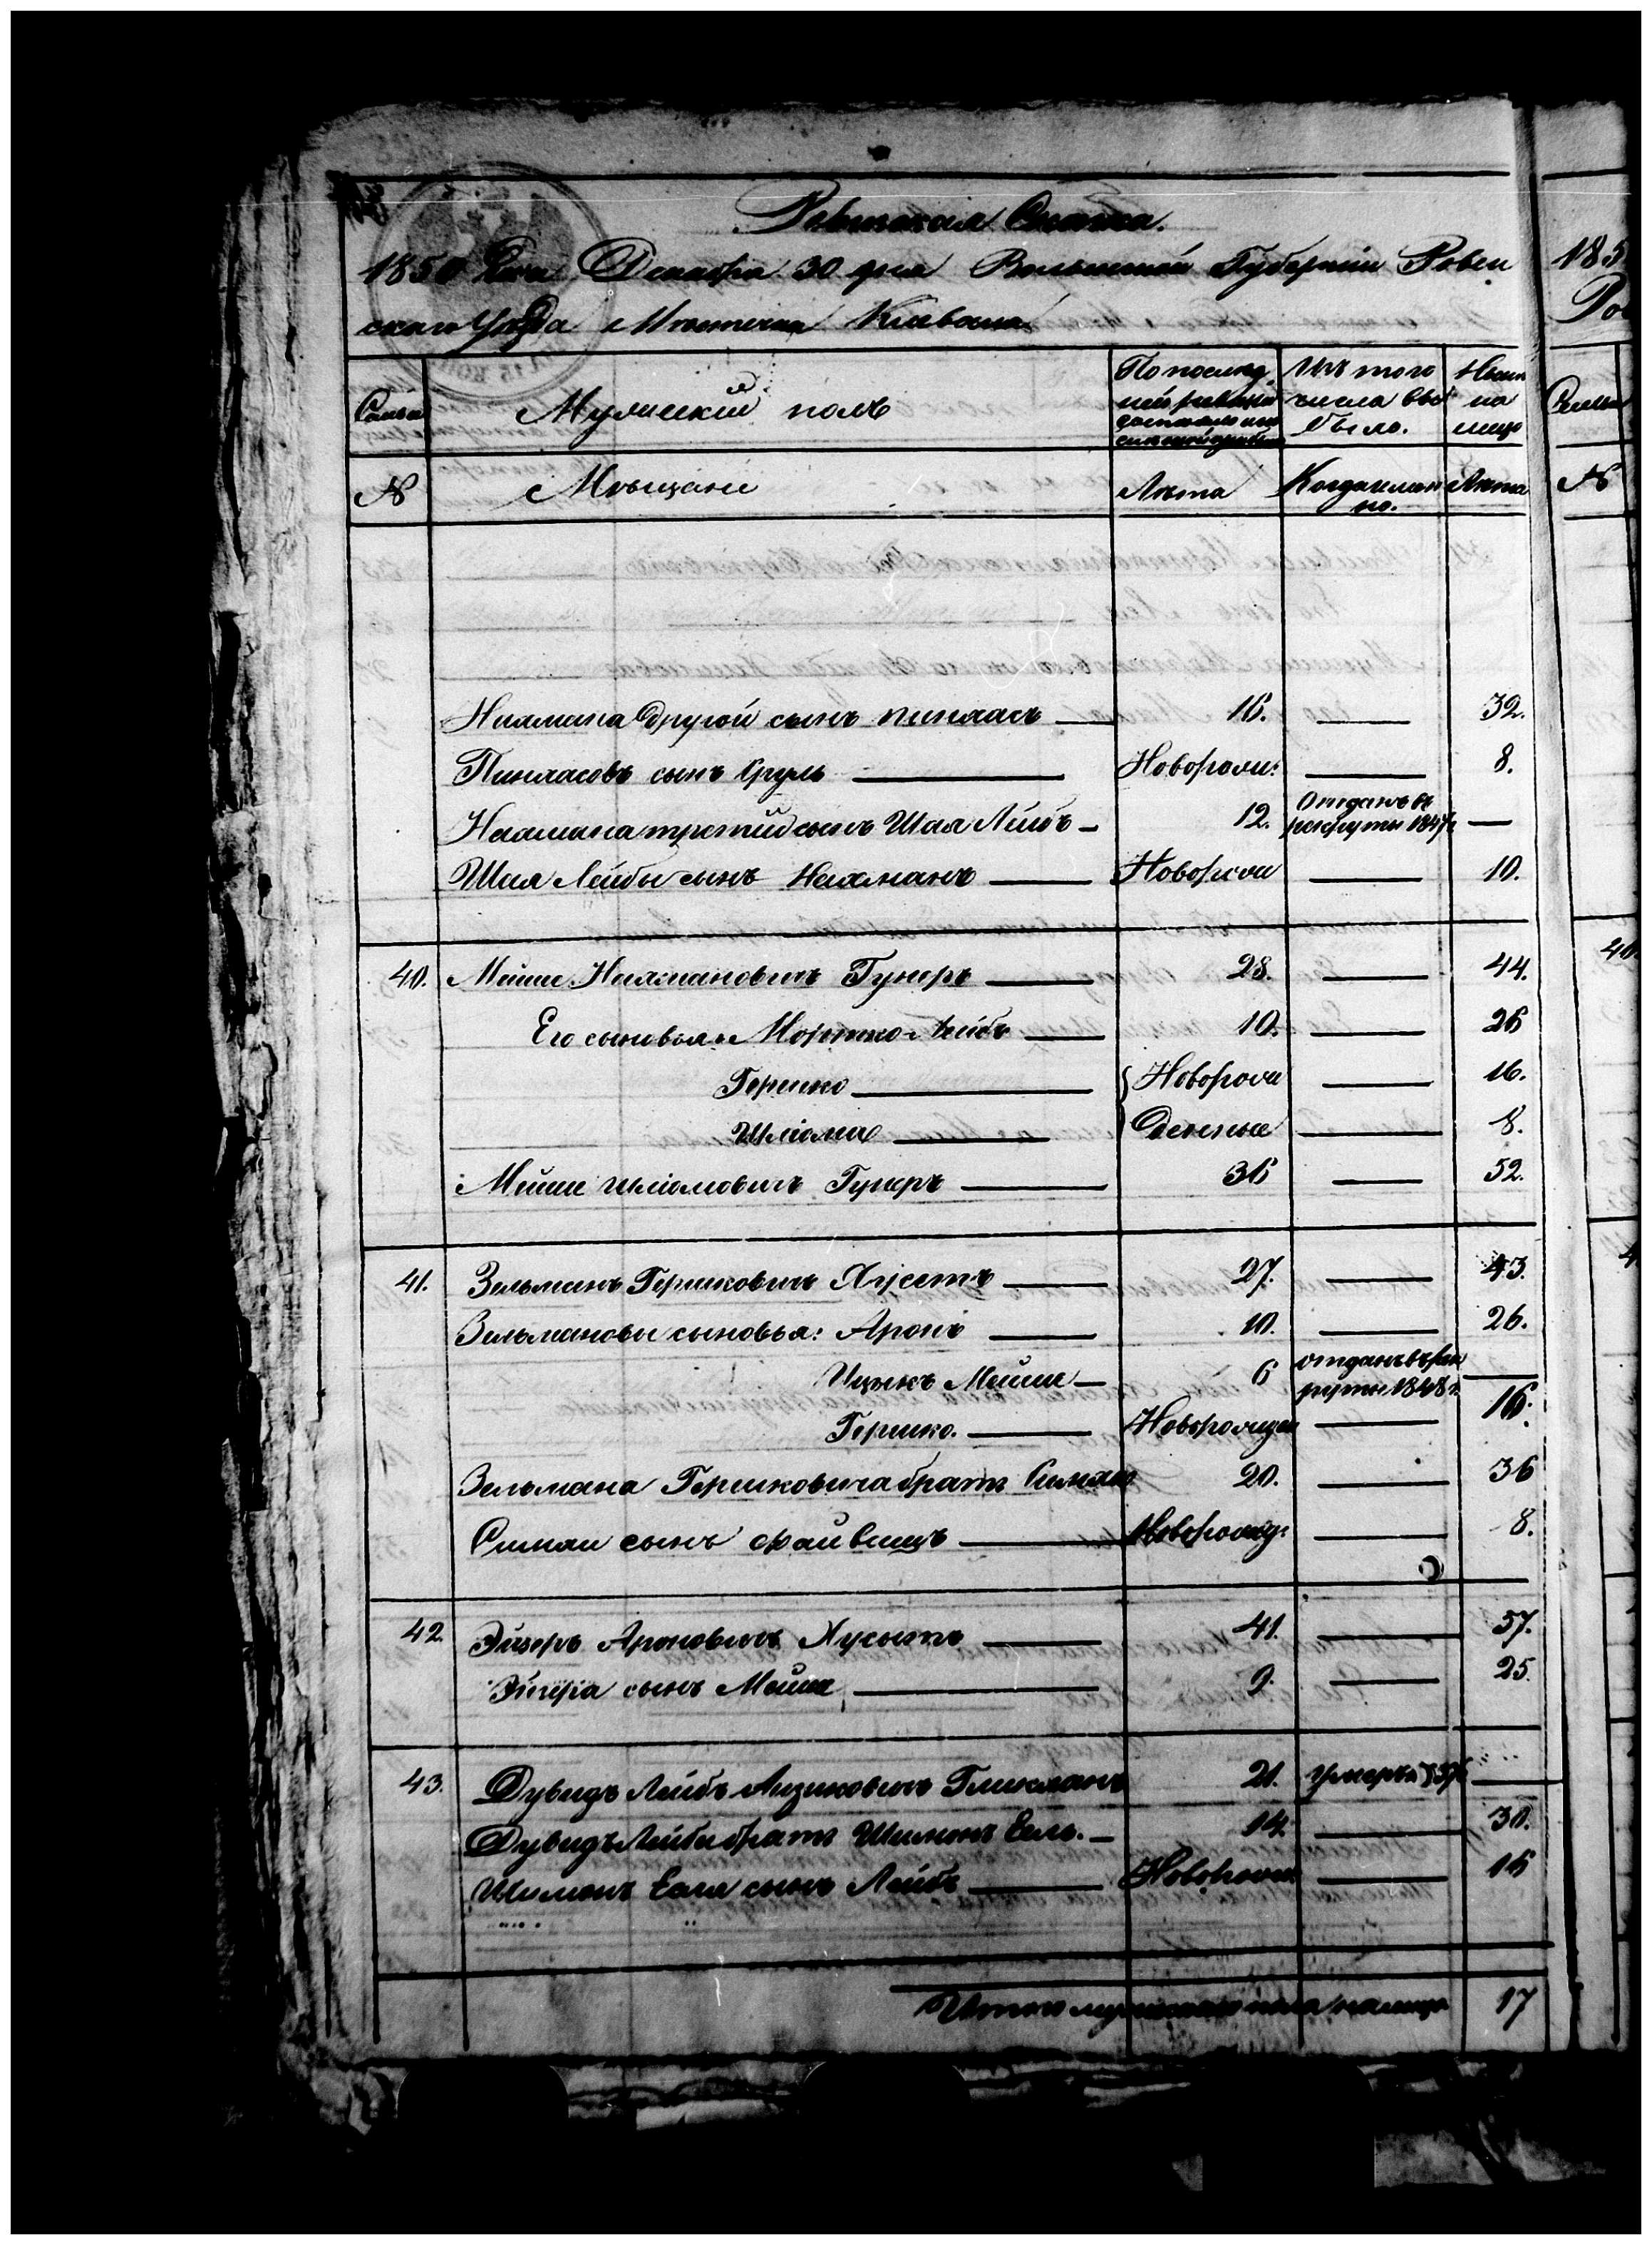 Ревизская Сказка.
1850 Года Декабря 30 дня Волынской Губернии Ровен
скаго Уѣзда Мѣстечка Клевана
Семьи
Мужеский полъ
По послед
ней ревизии
состояло и
Изъ того
числа вы
было.
Ныне
на
лицо
Семьи
№
Мѣщане
Лѣта
Когда имен
но.
Лѣта
№
Нахмана другой сынъ Пинхасъ 16. 32.
Пинхасовъ сынъ Сруль Новорожд: 8.
Нахмана третий сынъ Шая Лейбъ 12. Отданъ въ
рекруты 1847г
Шая Лейбы сынъ Нахманъ Новорожд 10.
40. Мейше Нахмановичъ Гунеръ 28. 44.
Его сыновья: Мошко Лейбъ 10. 26
Гершко Новорож 16.
Шліома денные 8.
Мейше Шліомовичъ Гунеръ 36 52.
41. Зельманъ Гершковичъ Хусетъ 27. 43.
Зельмановы сыновья: Аронъ 10. 26.
Ицыкъ Мейше 6 отданъ в рек
руты 1848г.
Гершко. Новорожден 16.
Зельмана Гершковича братъ Симха 20. 36
Симхи сынъ Файвишъ Новорожд: 8.
42. Эйзеръ Ароновичъ Хусытъ 41. 57.
Эйзера сынъ Мейше 9. 25
43. Дувидъ Лейбъ Айзиковичъ Гликманъ 21. умеръ в
Дувидъ Лейбы братъ Шимонъ Ель. 14. 30.
Шимонъ Еля сынъ Лейбъ Новорож 16
Итого мужескаго пола на лицо 17